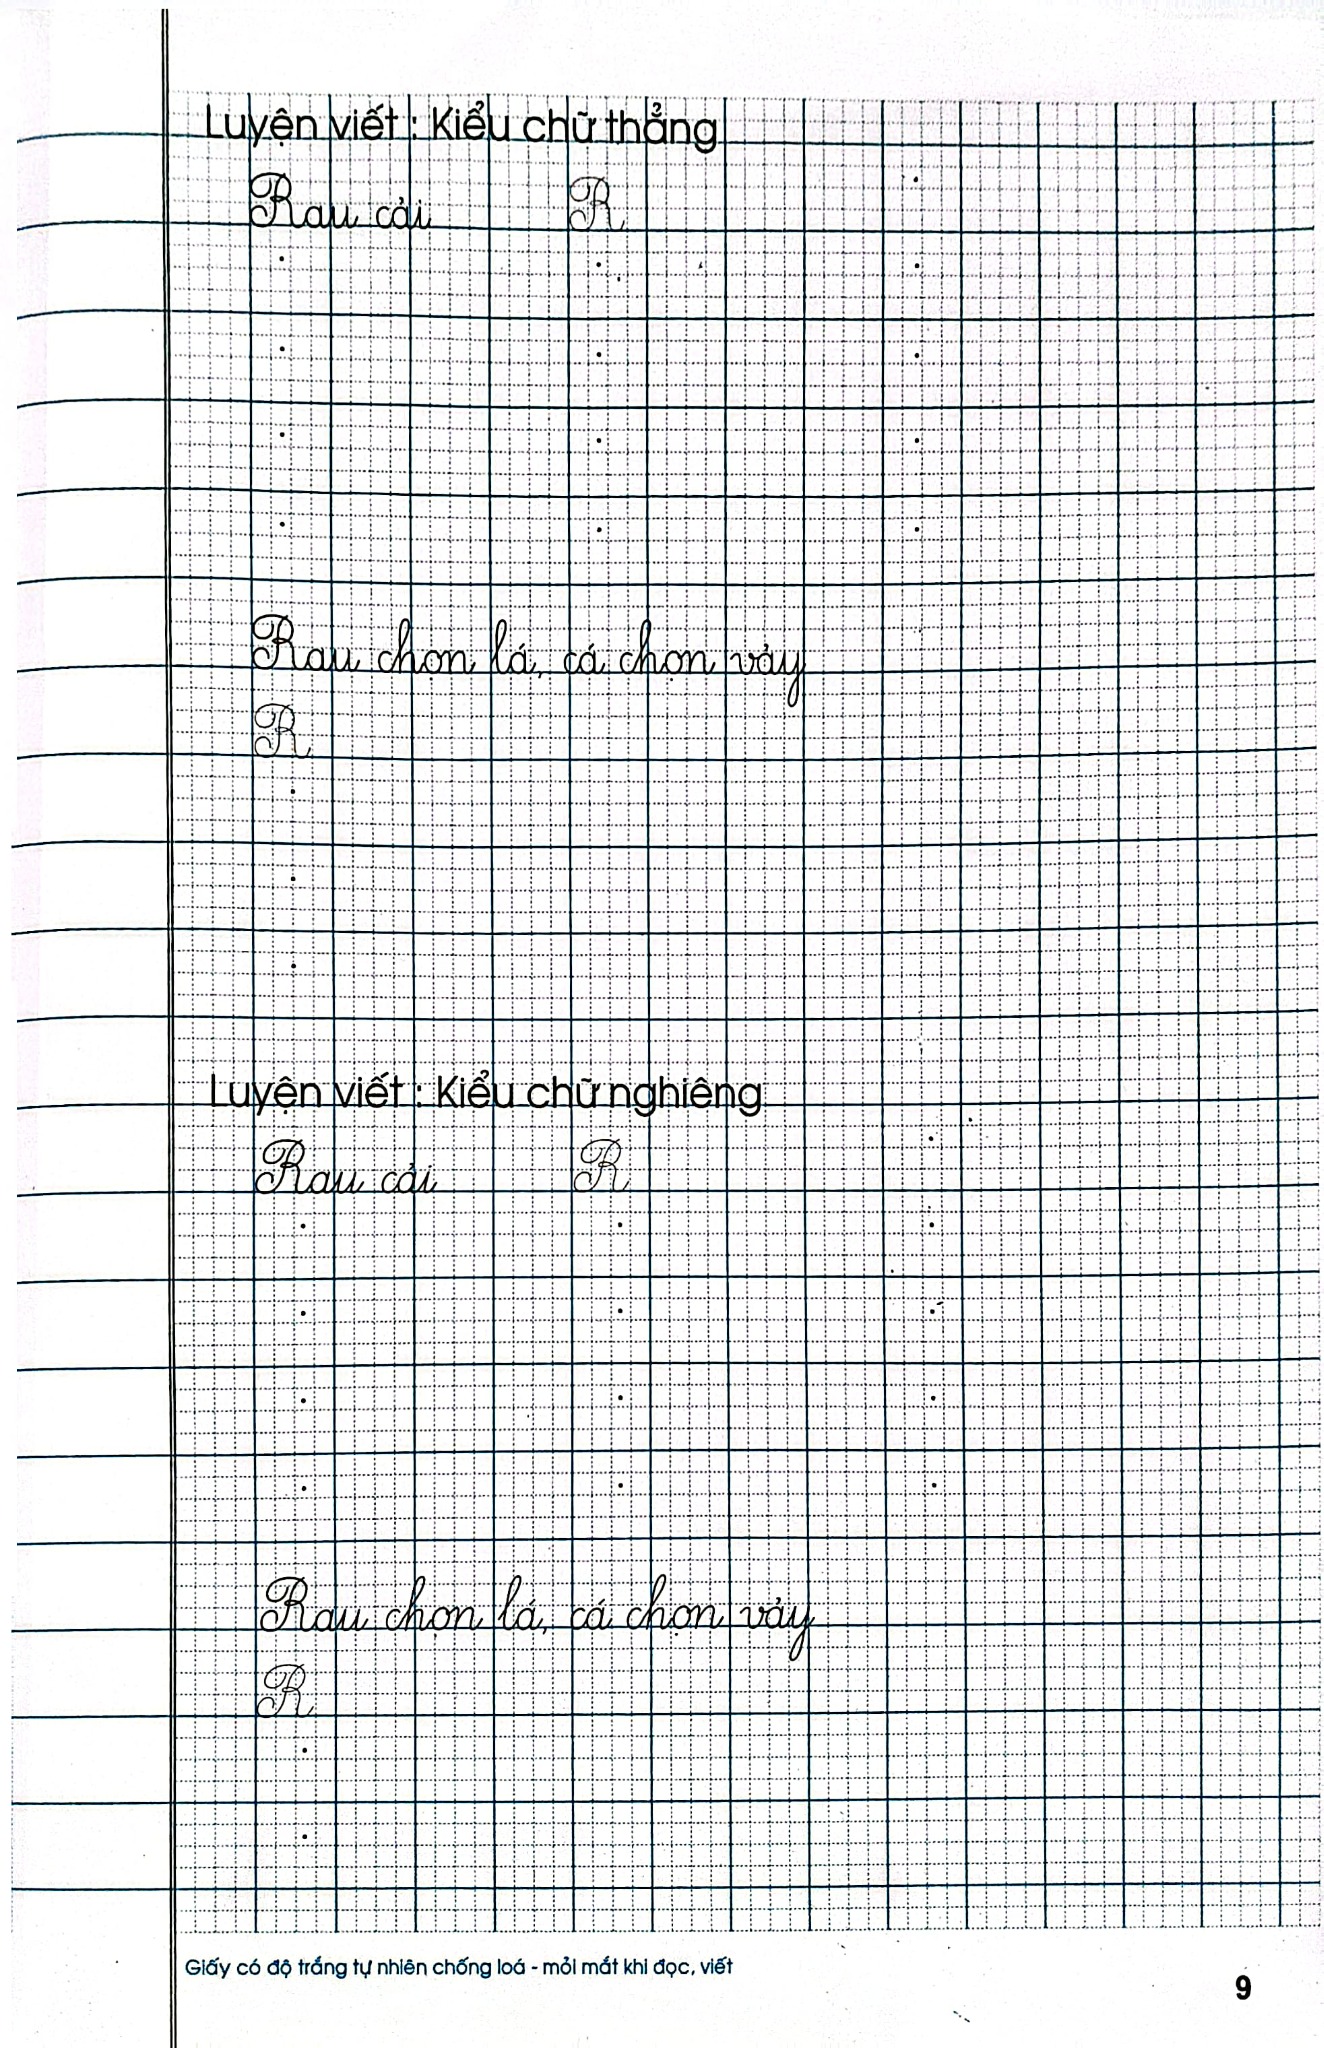 Luyện viết : Kiểu chữ thẳng
Rau cải R
Rau chọn lá, cá chọn vảy
R
Luyện viết : Kiểu chữ nghiêng
Rau cải R
Rau chọn lá, cá chọn vảy
R
Giấy có độ trắng tự nhiên chống loá - mỏi mắt khi đọc, viết
9